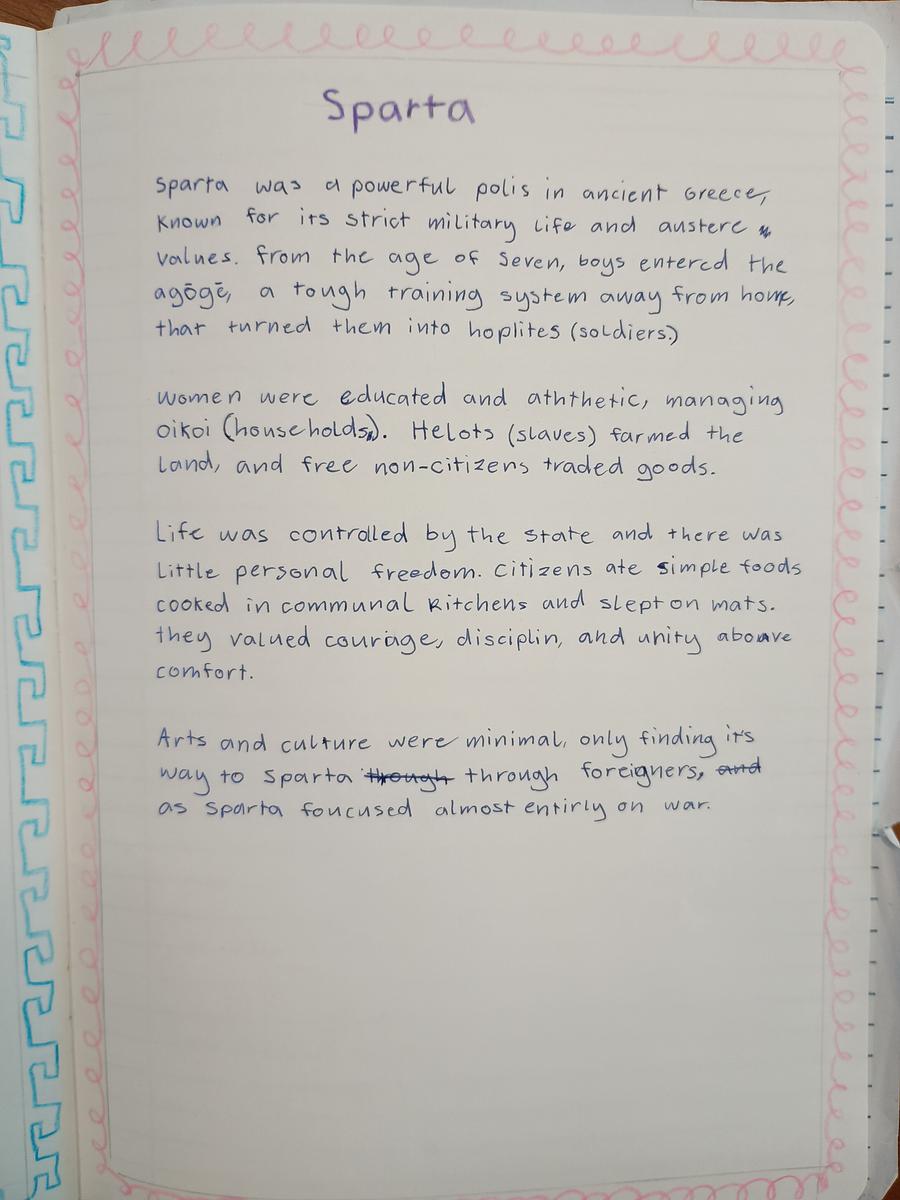 Sparta
Sparta was a powerful polis in ancient Greece,
Known for its strict military life and austere
values. From the age of seven, boys entered the
agōgē, a tough training system away from home,
that turned them into hoplites (soldiers.)
women were educated and aththetic, managing
oikoi (households). Helots (slaves) farmed the
land, and free non-citizens traded goods.
Life was controlled by the state and there was
little personal freedom. Citizens ate simple foods
cooked in communal kitchens and slept on mats.
they valued courage, disciplin, and unity above
comfort.
Arts and culture were minimal, only finding it's
way to Sparta though through foreigners, and
as Sparta foucused almost entirly on war.